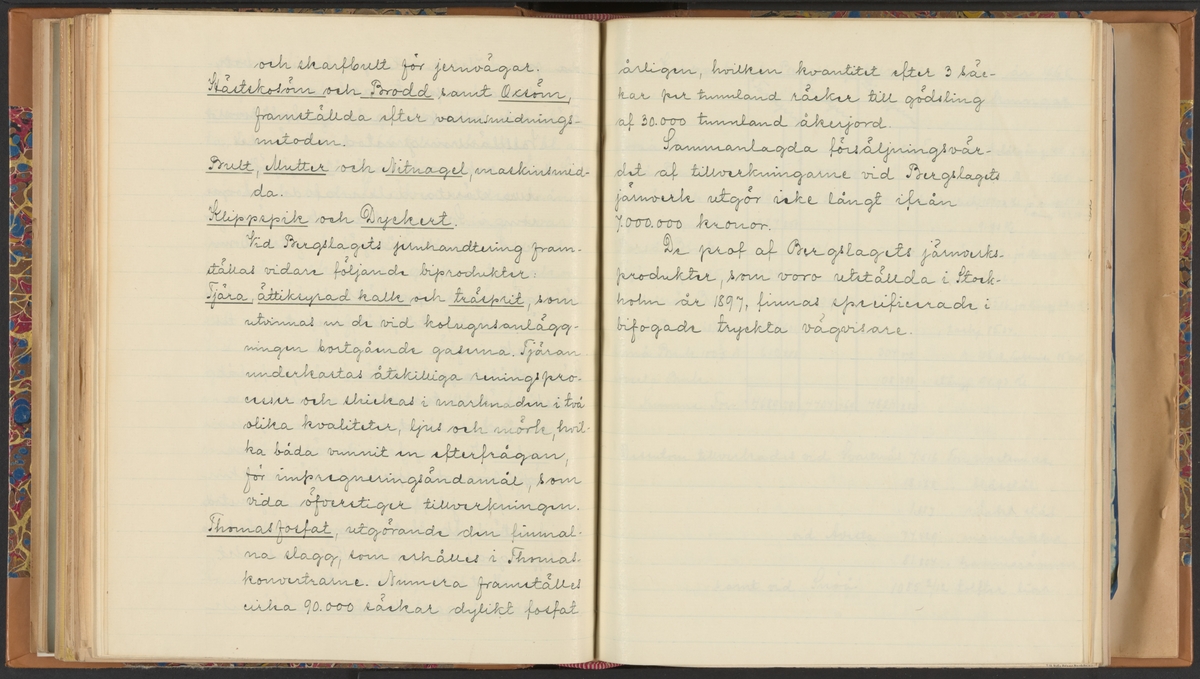 och skarfbult för jernvägar.
Hästskosöm och Brodd samt Oxsöm,
framställda efter varmsmidnings-
metoden.
Bult, Mutter och Nitnagel, maskinsmid-
da.
Klippspik och Dyckert.
Vid Bergslagets jernhandtering fram-
ställas vidare följande biprodukter:
Tjära, ättiksyrad kalk och träsprit, som
utvinnas ur de vid kolugnsanlägg-
ningen bortgående gaserna. Tjäran
underkastas åtskilliga reningspro-
cesser och skickas i marknaden i två
olika kvaliteter, ljus och mörk, hvil-
ka båda vunnit en efterfrågan,
för impregneringsändamål, som
vida öfverstiger tillverkningen.
Thomasfosfat, utgörande den finmal-
na slagg, som erhålles i Thomas-
konvertrarne. Numera framställes
cirka 90.000 säckar dylikt fosfat
årligen, hvilken kvantitet efter 3 säc-
kar per tunnland räcker till gödsling
af 30.000 tunnland åkerjord.
Sammanlagda försäljningsvär-
det af tillverkningarne vid Bergslagets
järnverk utgör icke långt ifrån
7.000.000 kronor.
De prof af Bergslagets järnverks-
produkter, som voro utställda i Stock-
holm år 1897, finnas specificerade i
bifogade tryckta vägvisare.